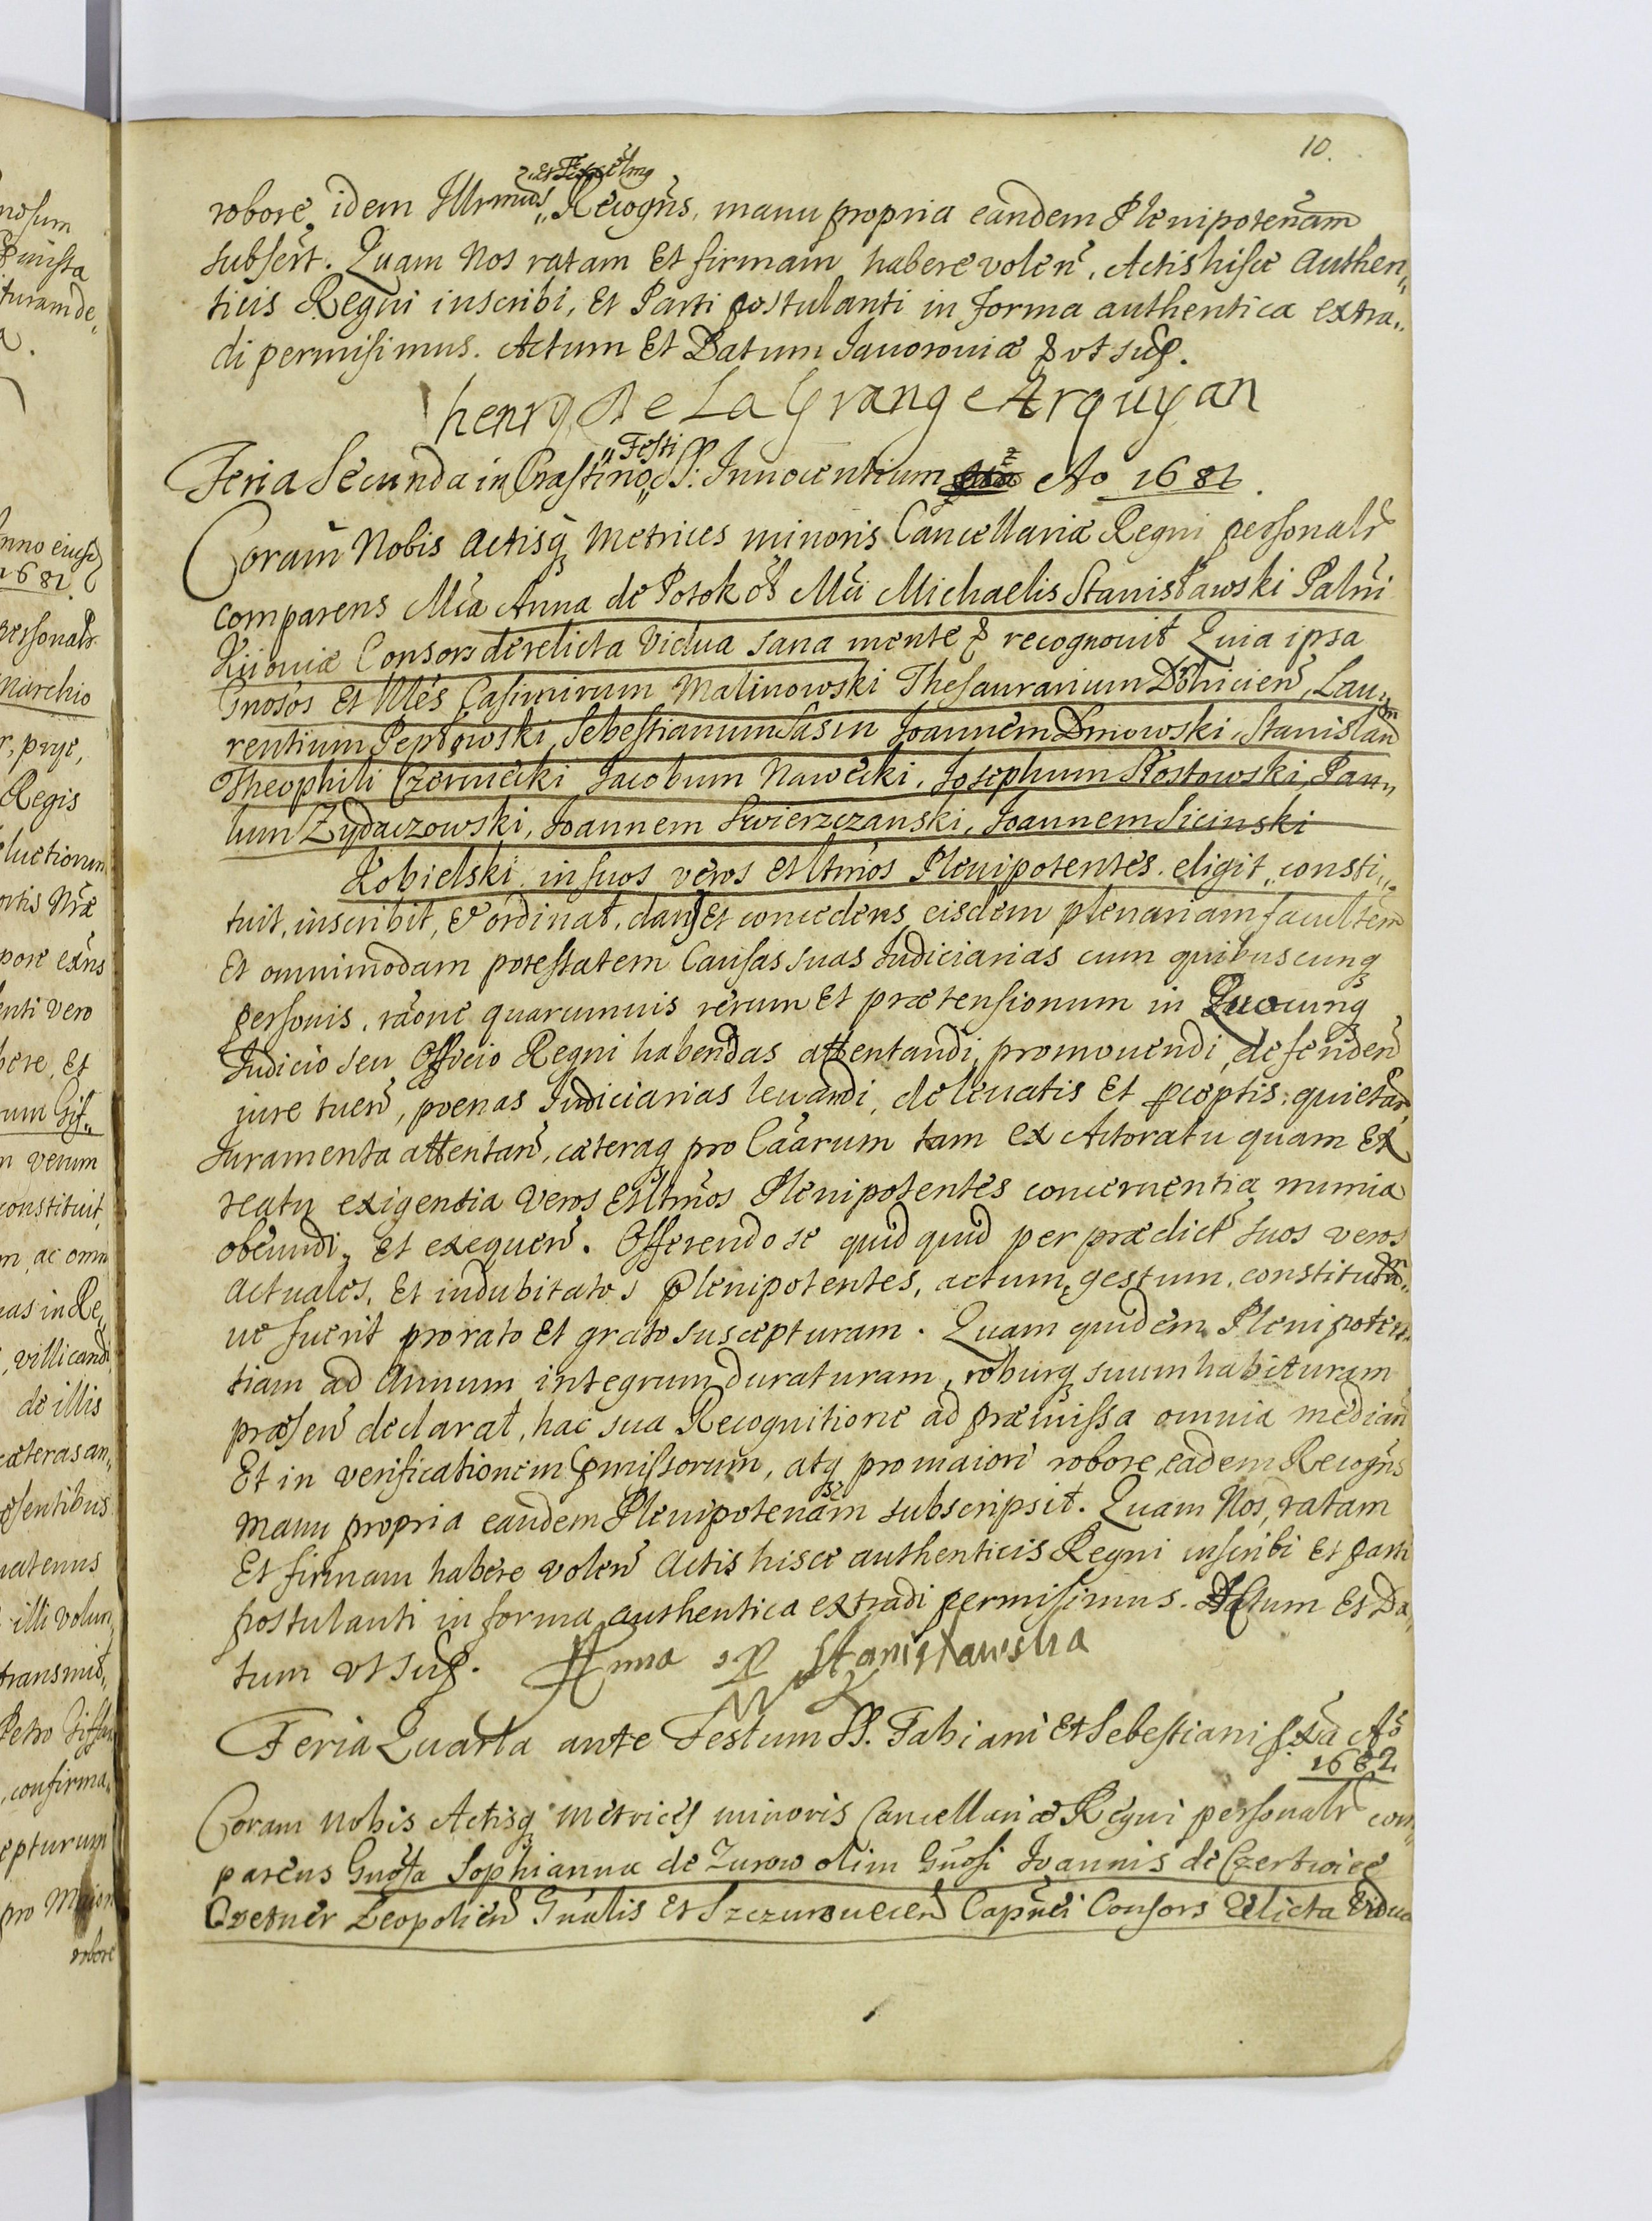 10.
et Excellms
robore, idem Illrmus Recogns, manu propria eandem Plenipotenam
subsert. Quam Nos ratam Et firmam habere volen, Actis hisce Authen„
ticis Regni inscribi, Et Parti postulanti in forma authentica extra„
di permisimus. Actum Et Datum Javoroviæ & vt sup.
henry De La Grange Arquyan
Feria Secunda in Crastino „Festi SS: Innocentium Ao 1681.
Coram Nobis Actisq Metrices minoris Cancellariæ Regni personalr
comparens Mca Anna de Potok ol Mci Michaelis Stanisławski Palni
Kijoviæ Consors derelicta Vidua sana mente & recognovit Quia ipsa
Gnosos Et Nles Casimirum Malinowski Thesaurarium Dolnicien, Lau„
rentium Pepłowski, Sebestianum Sasin Joannem Dmowski, Stanislaum
Theophili Czerniecki Jacobum Nawecki, Josephum Słostowski, Pau„
lum Zydaczowski, Joannem Swierzczanski, Joannem Sicinski
Kobielski in suos veros et ltmos Plenipotentes eligit, consti„
tuit, inscribit, & ordinat, dans Et concedens eisdem plenariam facultem
Et omnimodam potestatem Causas suas Judiciarias cum quibuscunq
personis, raone quarumvis rerum Et prætensionum in Quocunq
Judicio seu Officio Regni habendas attentandi, promovendi, defenden
jure tuen, poenas Judiciarias levandi, de levatis Et pceptis quietan
Juramenta attentan, cæteraq pro Caarum tam ex Actoratu quam Ex
reatu exigentia Veros Et ltmos Plenipotentes concernentia munia
obeundi, Et exequen. Offerendo se quid quid per prædict suos veros
actuales, Et indubitatos Plenipotentes, actum, gestum, constitutum„
ve fuerit pro rato Et grato suscepturam. Quam quidem Plenipoten„
tiam ad Annum integrum duraturam, roburq suum habituram
præsen declarat, hac sua Recognitione ad præmissa omnia median
Et in verificationem pmissorum, atq pro maiori robore, eadem Recogns
manu propria eandem Plenipotenam subscripsit. Quam Nos, ratam
Et firmam habere volen Actis hisce authenticis Regni inscribi Et parti
postulanti in forma authentica extradi permisimus. Actum Et Da„
tum vt sup. Anna z P Stanisławska
Feria Quarta ante Festum SS. Fabiani Et Sebestiani pxia Ao
1682.
Coram Nobis Actisq Metrices minoris Cancellariæ Regni personalr com„
parens Gnosa Sophianna de Zurow olim Gnosi Joannis de Czertwice
Cvetner Leopolien Gnalis Et Szczurovecen Capnei Consors relicta Vidua